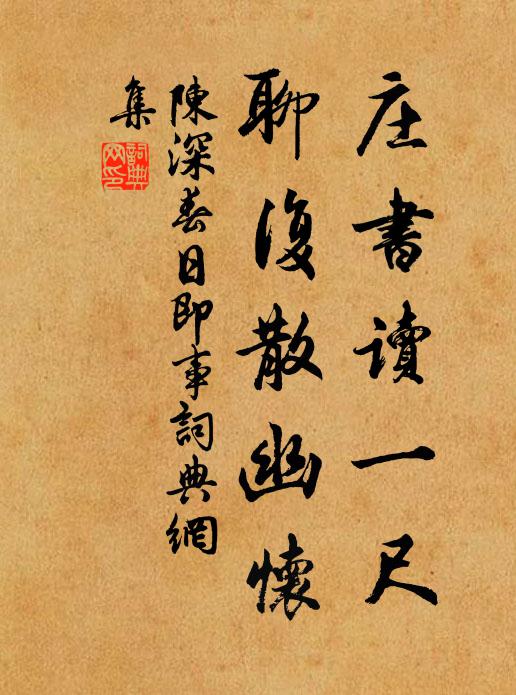 庄書讀一尺
聊復散幽懷
陳深春日即事詞典網
集
詞典